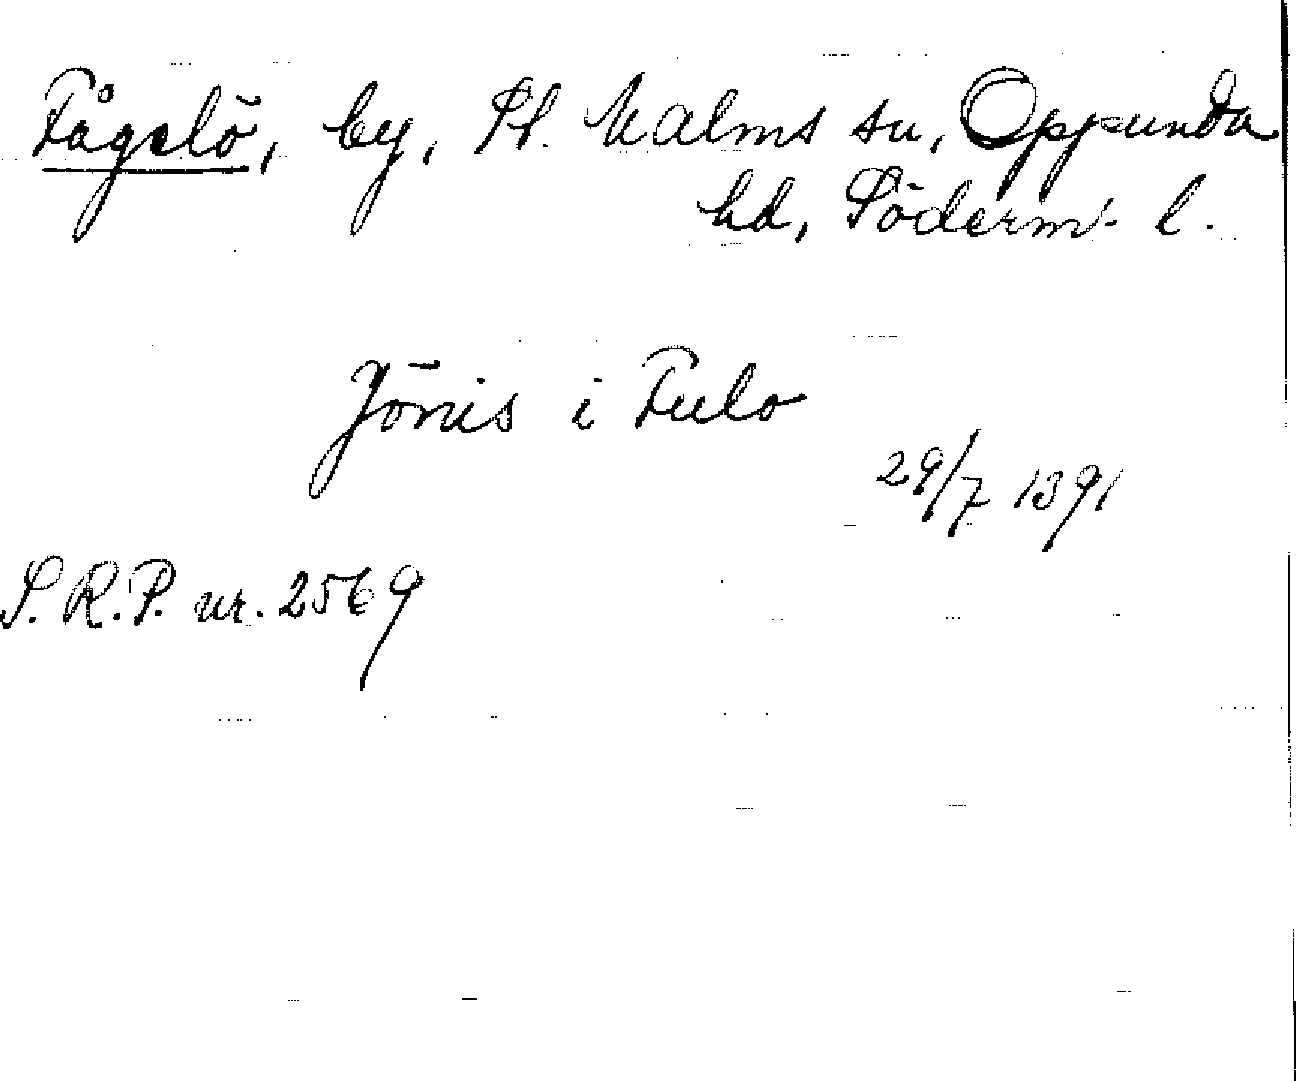 Fågelö, by, St. Malms sn, Oppunda
hd, Söderm. l.
Jönis i Fulo
29/7 1391
S. R. P. nr. 2569